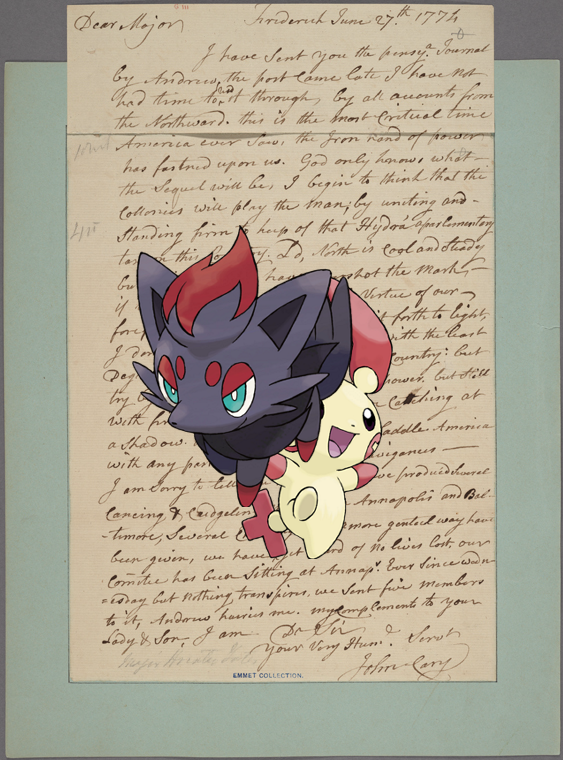 Dear Major
Frederick June 27.th 1774
I have Sent you the pensyᵃ Journal
by Andrew, the post Came late I have not
had time to it through, by all accounts from
the Northward. this is the most Critical time
America ever Saw, the Iron hand of power
has fastned upon us. God only knows what
the Sequel will be, I begin to think that the
Collonies will play the man, by uniting and
Standing firm to keep of that Hydra a parlementary
tax on this Country. Ld, North is Cool and Steady
but have shot the Mark,
if Virtue of our
fore it forth to light,
I do with the least
Deg Country: but
try power, but Still
with fi Catching at
a Shadow. Saddle America
with any par
I am Sorry to tell have produced Several
Cancing & Cudgelin Annapolis and Bal-
timore, Several C more genteel way have
been given, we have yet of no lives lost, our
Comitee has been Sitting at Annap.s Ever Since wedn-
=esday but nothing transpires, we Sent five members
to it, Andrew hurries me. my Complements to your
Lady & Son, I am Dr Sir
Your Very Hum.e Servt
John Cary
EMMET COLLECTION.